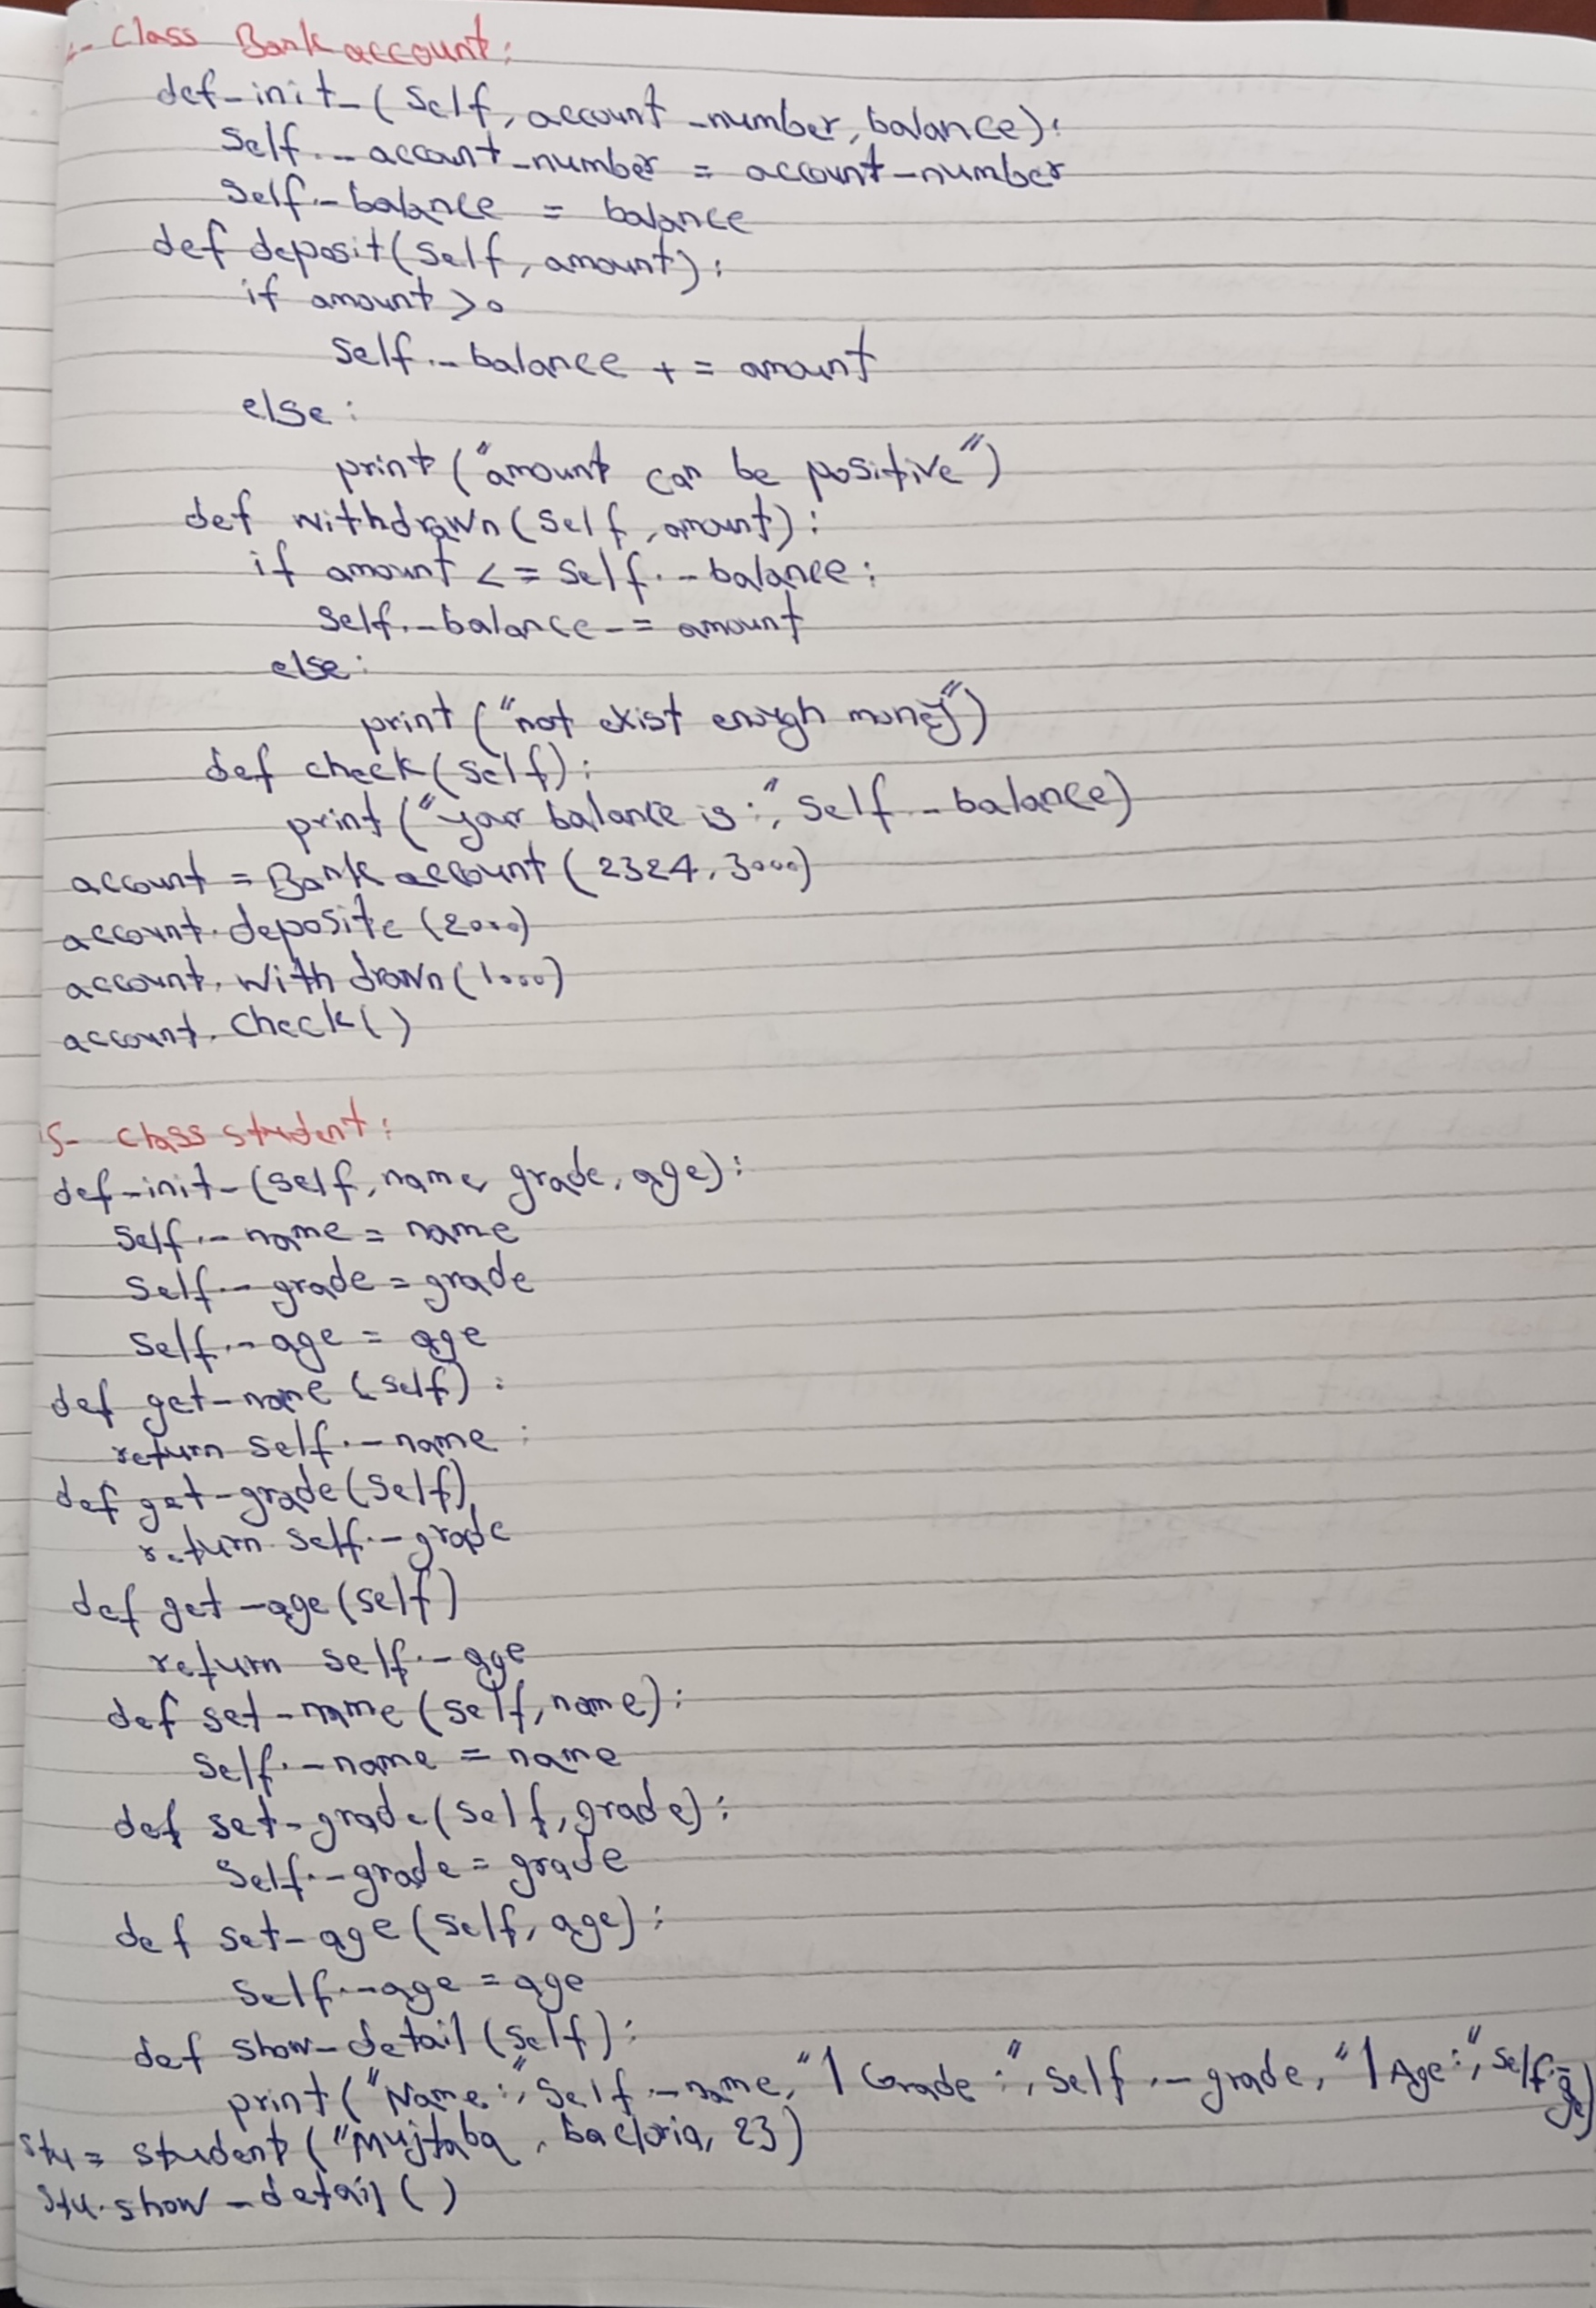 class Bank account:
def_init_(self, account_number, balance):
self._account_number = account_number
self._balance = balance
def deposit(self, amount):
if amount >0
self._balance += amount
else:
print("amount can be positive")
def withdrawn(self, amount):
if amount <= self._balance:
self._balance -= amount
else:
print("not exist enough money")
def check(self):
print("your balance is:", self._balance)
account = Bank account(2324, 3000)
account.deposite(2000)
account.withdrawn(1000)
account.check()
5- class student:
def_init_(self, name, grade, age):
self._name = name
self._grade = grade
self._age = age
def get_name(self):
return self._name:
def get_grade(self)
return self._grade
def get_age(self)
return self._age
def set_name(self, name):
self._name = name
def set_grade(self, grade):
self._grade = grade
def set_age(self, age):
self._age = age
def show_detail(self):
print("Name:", self._name, "| Grade:", self._grade, "| Age:", self._age)
stu = student("Mujtaba, bacloria, 23)
stu.show_detail()